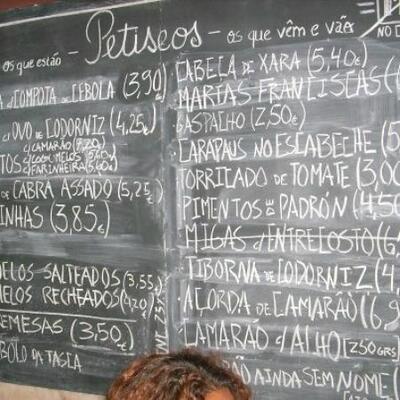 os que estão - Petiscos - os que vêm e vão
NO
COMPOTA DE CEBOLA (3,90
C/ OVO DE CODORNIZ (4,25€)
C/ CAMARÃO (7,20)
TOS C/ COGUMELOS
C/ FARINHEIRA
DE CABRA ASSADO (5,25€)
INHAS (3,85€)
ELOS SALTEADOS (3,55€
ELOS RECHEADOS (4,20€)
REMESAS (3,50€)
BOLO DA TASCA
CABEÇA DE XARA (5,40€)
MARIAS FRANCISCAS (
GASPALHO (2,50€)
CARAPAUS NO ESCABECHE (5
TORRICADO DE TOMATE (3,00
PIMENTOS DE PADRÓN (4,50
MIGAS C/ ENTRECOSTO (6,
TIBORNA DE CODORNIZ (4,
AÇORDA DE CAMARÃO (6,9
CAMARÃO C/ ALHO [250 GRS]
ÃO AINDA SEM NOME (